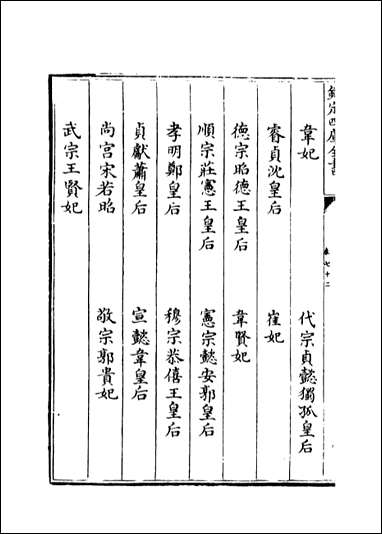 欽定四庫全書
卷七十二
韋妃　代宗貞懿獨孤皇后
睿貞沈皇后　崔妃
德宗昭德王皇后　韋賢妃
順宗莊憲王皇后　憲宗懿安郭皇后
孝明鄭皇后　穆宗恭僖王皇后
貞獻蕭皇后　宣懿韋皇后
尚宮宋若昭　敬宗郭貴妃
武宗王賢妃